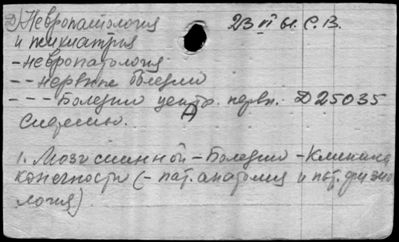 2) Невропатология 23 VI 61. С. В.
и психиатрия
- невропатология
- - нервные болезни
- - - Болезни центр. нервн. Д 25035
системы.
1. Мозг спинной - Болезни - Клиника
конечности (- пат. анатомия и пат. физио
логия)